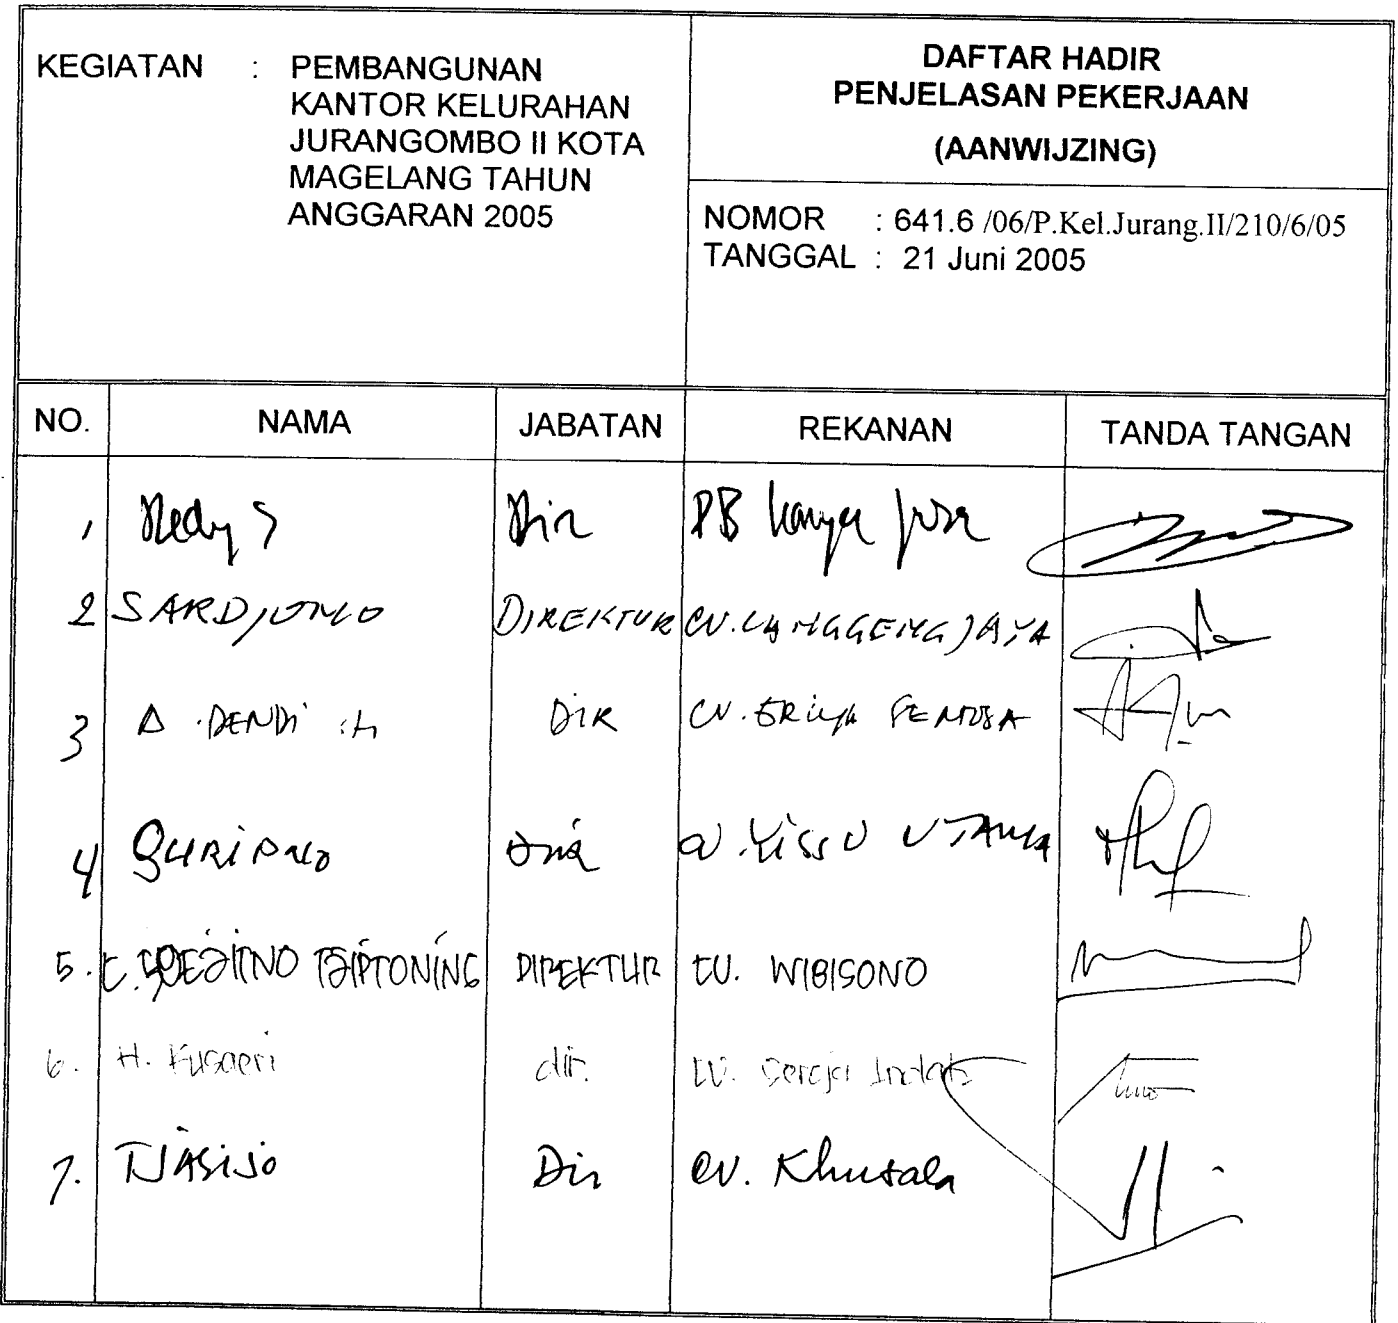 KEGIATAN : PEMBANGUNAN
KANTOR KELURAHAN
JURANGOMBO II KOTA
MAGELANG TAHUN
ANGGARAN 2005
DAFTAR HADIR
PENJELASAN PEKERJAAN
(AANWIJZING)
NOMOR : 641.6 /06/P.Kel.Jurang.II/210/6/05
TANGGAL : 21 Juni 2005
NO. NAMA JABATAN REKANAN TANDA TANGAN
1 Hedy S Dir PB karya jasa
2 SARDJONO DIREKTUR CV. LANGGENG JAYA
3 A. DENDI .H DIR CV.
4 Dir CV. UTAMA
5. DIREKTUR CV. WIBISONO
6. H. dir. CV. Indah
7. Dir CV. Khusala